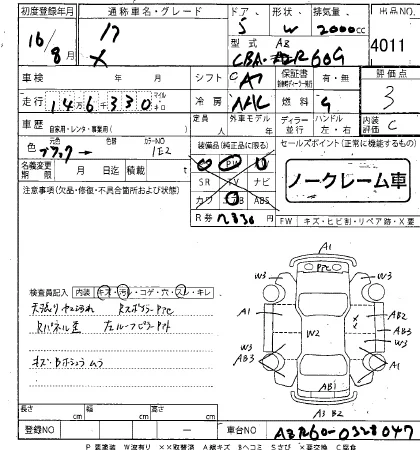 初度登録年月 通称車名・グレード ドア 形状 排気量 出品NO
16/8月 5 W 2000cc 4011
型式
CBA-AZR60G
車検 年 月 シフト AT 保証書 有・無 評価点
走行 146330 マイル キロ 冷房 AAC 燃料 G 3
定員 人 外車モデル 年 ディーラー 並行 ハンドル 左・右 内装評価 C
車歴 自家用・レンタ・事業用( )
元色 色替 カラーNO 装備品(純正品に限る) セールスポイント(正常に機能するもの)
色 ブラック → 1E2
名義変更期限 月 日迄 積載 t SR TV ナビ ノークレーム車
注意事項(欠品・修復・不具合箇所および状態) カワ AB ABS
R券 FW キズ・ヒビ割・リペア跡・X要
A1
W3 W3
A1 AB2
W2
AB3
W3 W3
AB3 AB3
AB1
A3 B2
検査員記入 内装 キズ・汚レ・コゲ・穴・スレ・キレ
天張りヤニ汚れ
キズ・凹 ムラ
長さ cm 幅 cm 高さ cm
登録NO ー 車台NO AZR60-0328047
P要塗装 W波有り ××取替済 A線キズ Bヘコミ Sさび ×要交換 C腐食